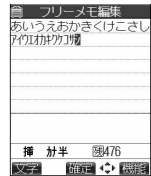 フリーメモ編集
あいうえおかきくけこさし
ｱｲｳｴｵｶｷｸｹｺｻ
挿 ｶﾅ半 残476
文字 確定 機能